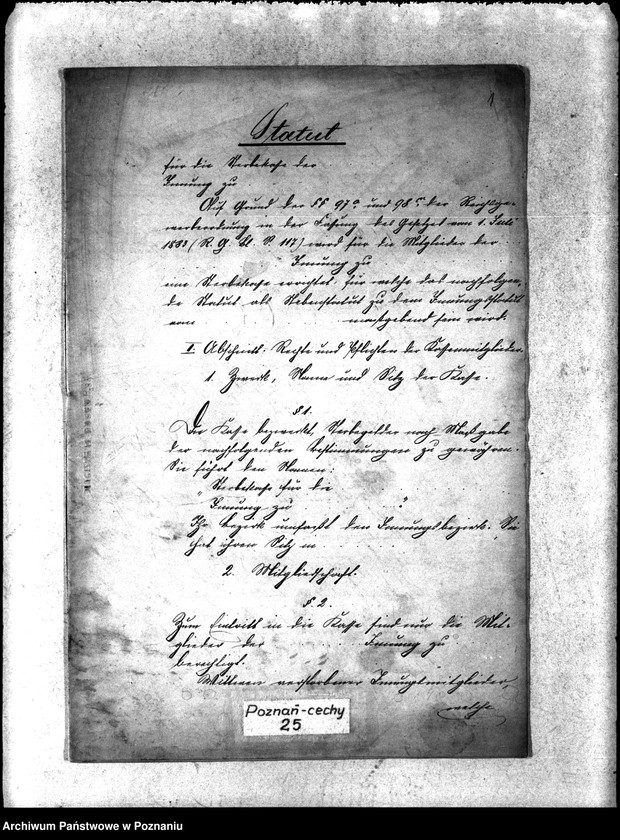 1
Statut
für die Sterbekasse der
Innung zu
Auf Grund der §§ 97a und 98c der Reichsge-
werbeordnung in der Fassung des Gesetzes vom 1. Juli
1883 (R. G. Bl. S. 117) wird für die Mitglieder der
Innung zu
eine Sterbekasse errichtet, für welche das nachfolgen-
de Statut als Nebenstatut zu dem Innungsstatut
vom maßgebend sein wird.
I Abschnitt. Rechte und Pflichten der Kassenmitglieder.
1. Zweck, Name und Sitz der Kasse.
§ 1.
Die Kasse bezweckt, Sterbegelder nach Maßgabe
der nachfolgenden Bestimmungen zu gewähren.
Sie führt den Namen:
„Sterbekasse für die
Innung zu "
Ihr Bezirk umfaßt den Innungsbezirk. Sie
hat ihren Sitz in
2. Mitgliedschaft.
§ 2.
Zum Eintritt in die Kasse sind nur die Mit-
glieder der Innung zu
berechtigt.
Wittwen verstorbener Innungsmitglieder,
welche
Poznań-cechy
25
Archiwum Państwowe w Poznaniu